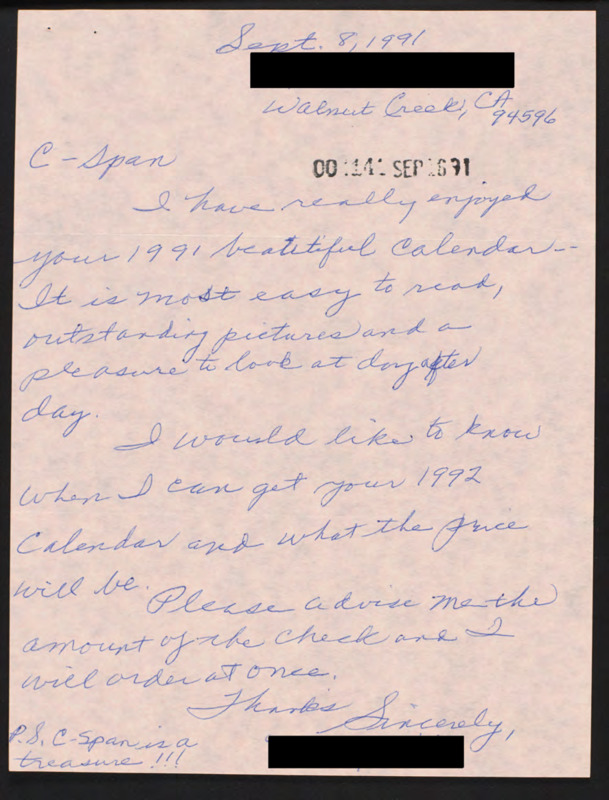 Sept. 8, 1991
Walnut Creek, CA
94596
C-Span
SEP 1691
I have really enjoyed
your 1991 beautiful calendar—
It is most easy to read,
outstanding pictures and a
pleasure to look at day after
day.
I would like to know
when I can get your 1992
Calendar and what the price
will be.
Please advise me the
amount of the check and I
will order at once.
Thanks
Sincerely,
P.S. C-Span is a
treasure!!!